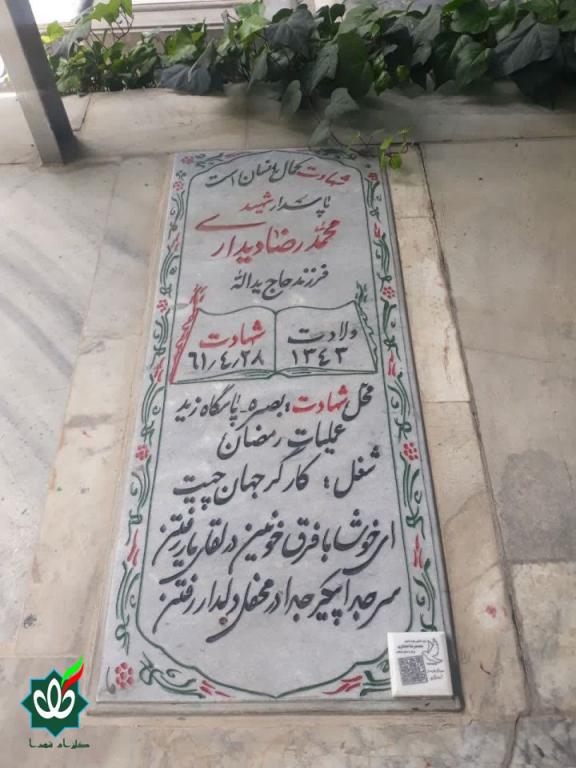 شهادت کمال انسان است
پاسدار شهید
محمدرضا دیداری
فرزند حاج یدالله
ولادت
۱۳۴۳
شهادت
۶۱/۴/۲۸
محل شهادت: بصره - پاسگاه زید
عملیات رمضان
شغل: کارگر جهان چیت
ای خوشا با فرق خونین در لقای یار رفتن
سر جدا پیکر جدا در محفل دلدار رفتن
گلزار شهدا